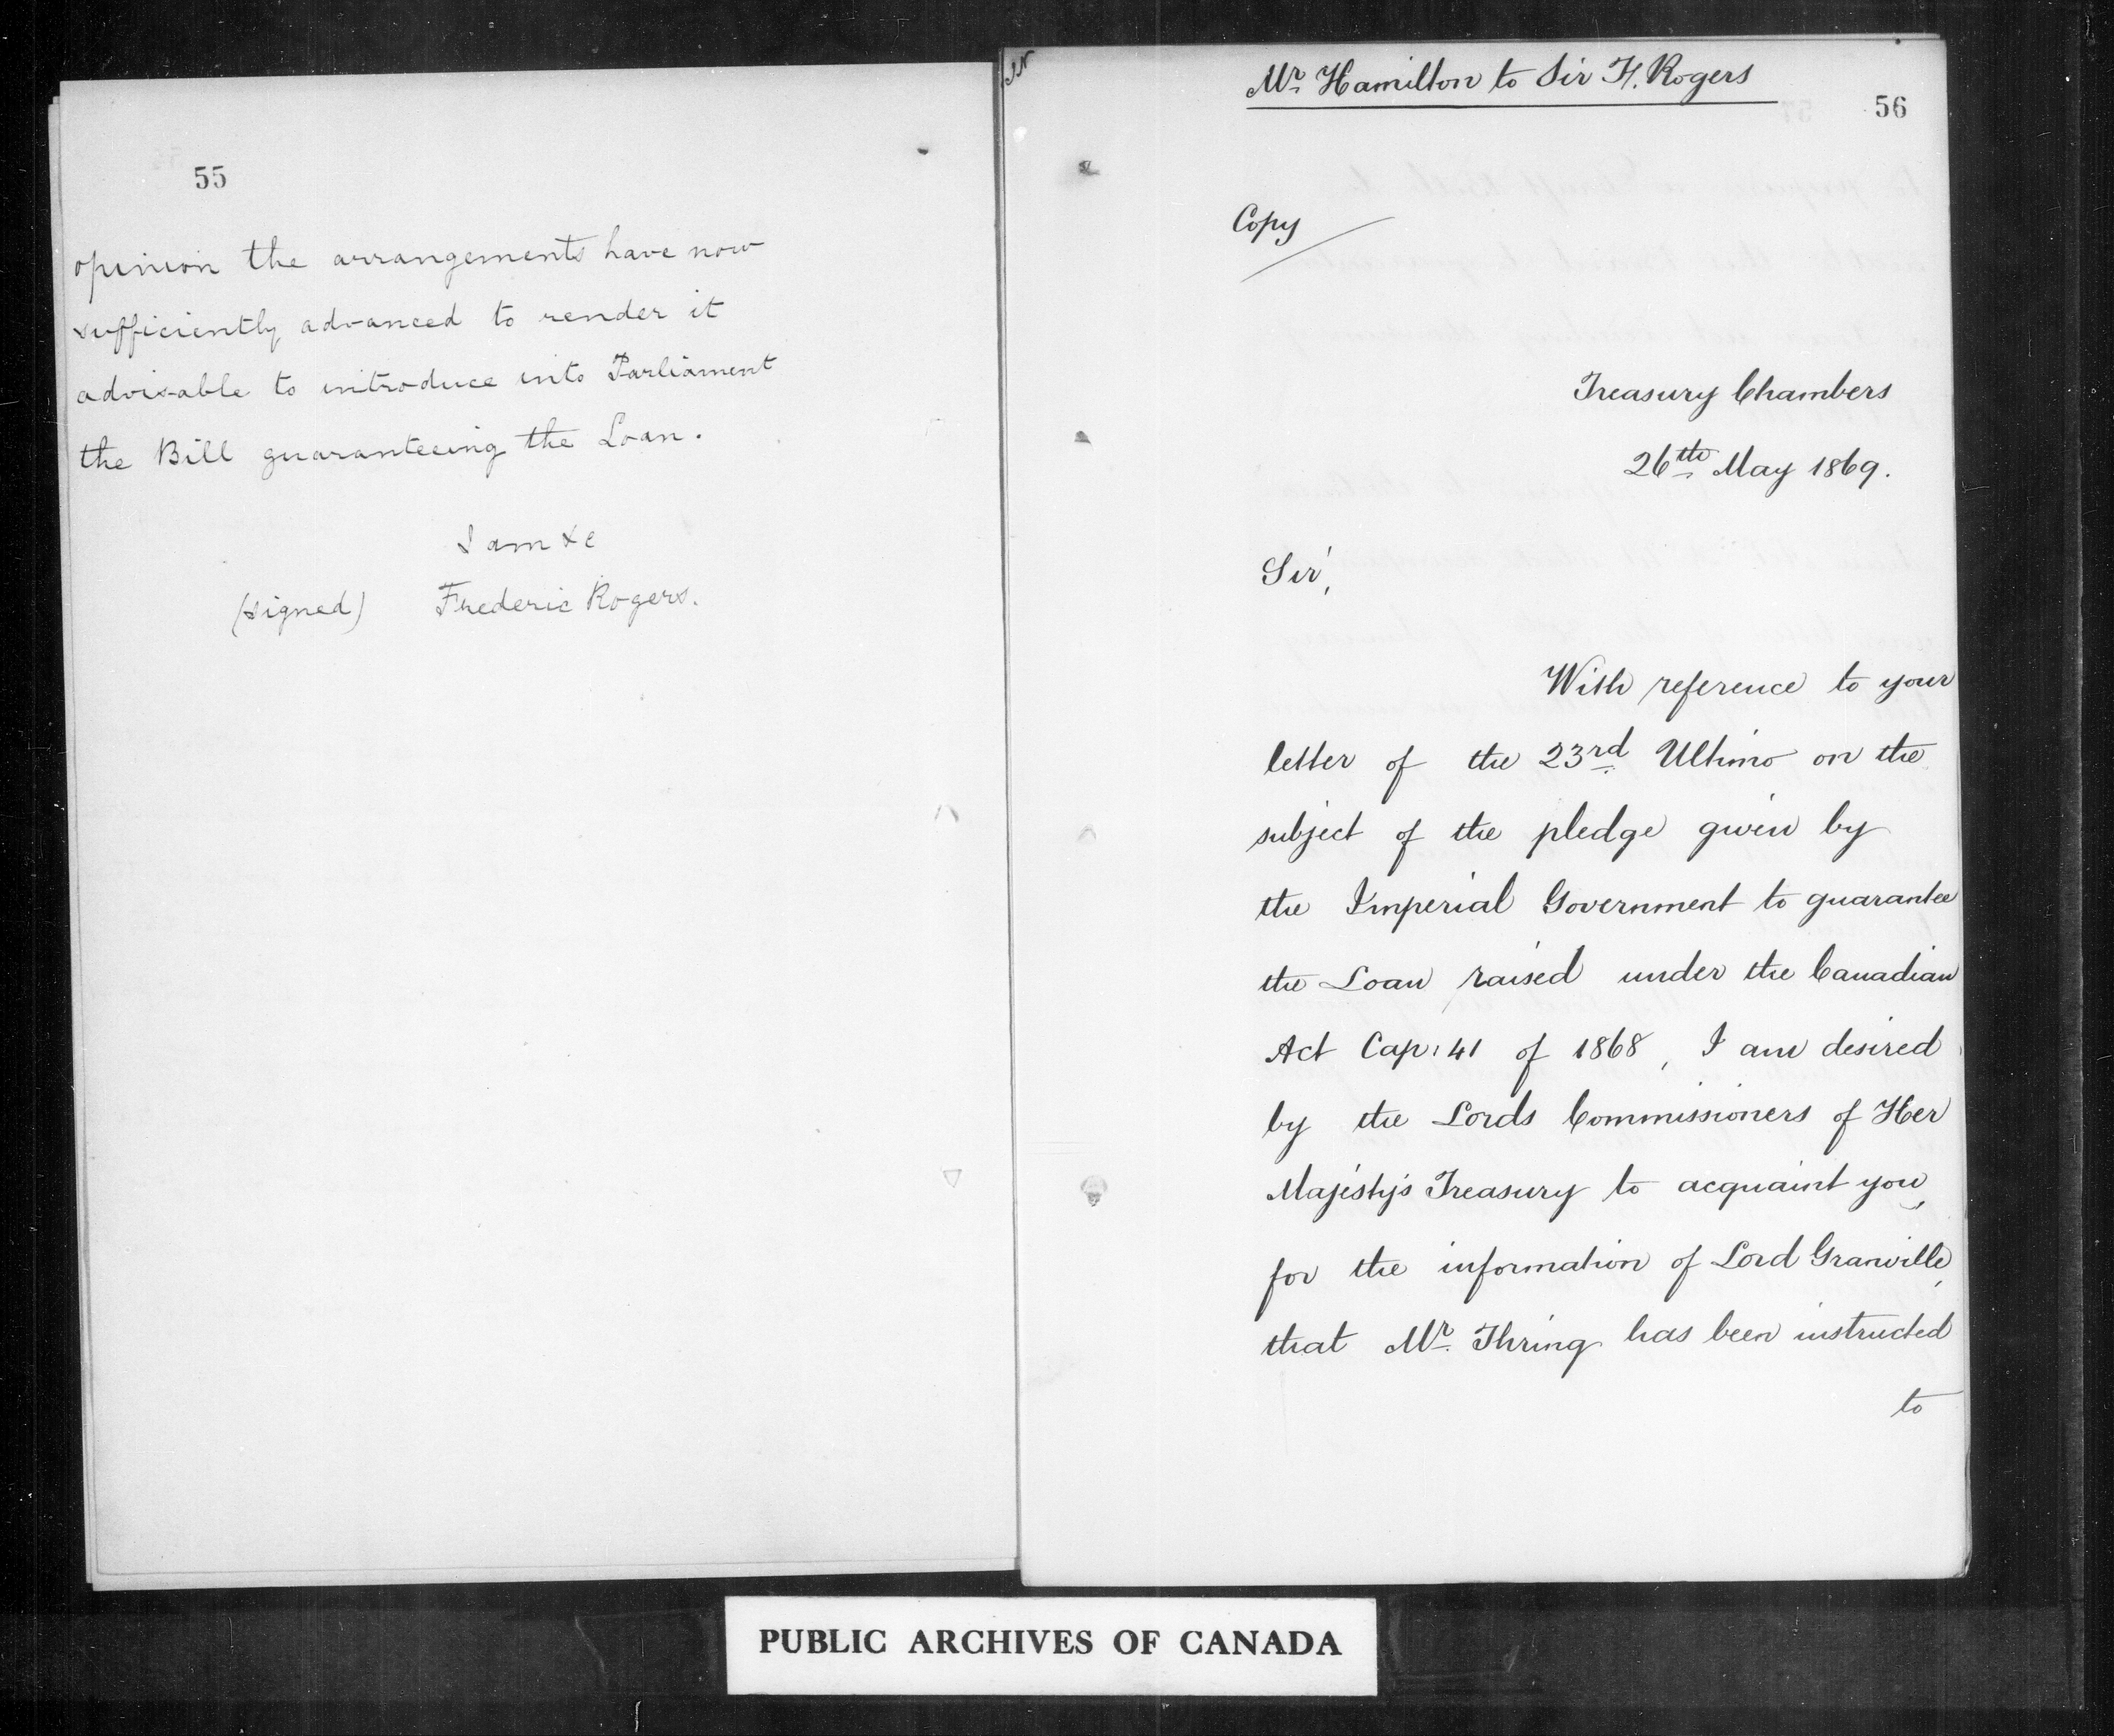 55
opinion the arrangements have now
sufficiently advanced to render it
advisable to introduce into Parliament
the Bill guaranteeing the Loan.
I am &c
(signed) Frederic Rogers.
Mr. Hamilton to Sir F. Rogers
56
Copy
Treasury Chambers
26th May 1869.
Sir,
With reference to your
letter of the 23rd Ultimo on the
subject of the pledge given by
the Imperial Government to guarantee
the Loan raised under the Canadian
Act Cap: 41 of 1868, I am desired
by the Lords Commissioners of Her
Majesty's Treasury to acquaint you,
for the information of Lord Granville,
that Mr. Thring has been instructed
to
PUBLIC ARCHIVES OF CANADA